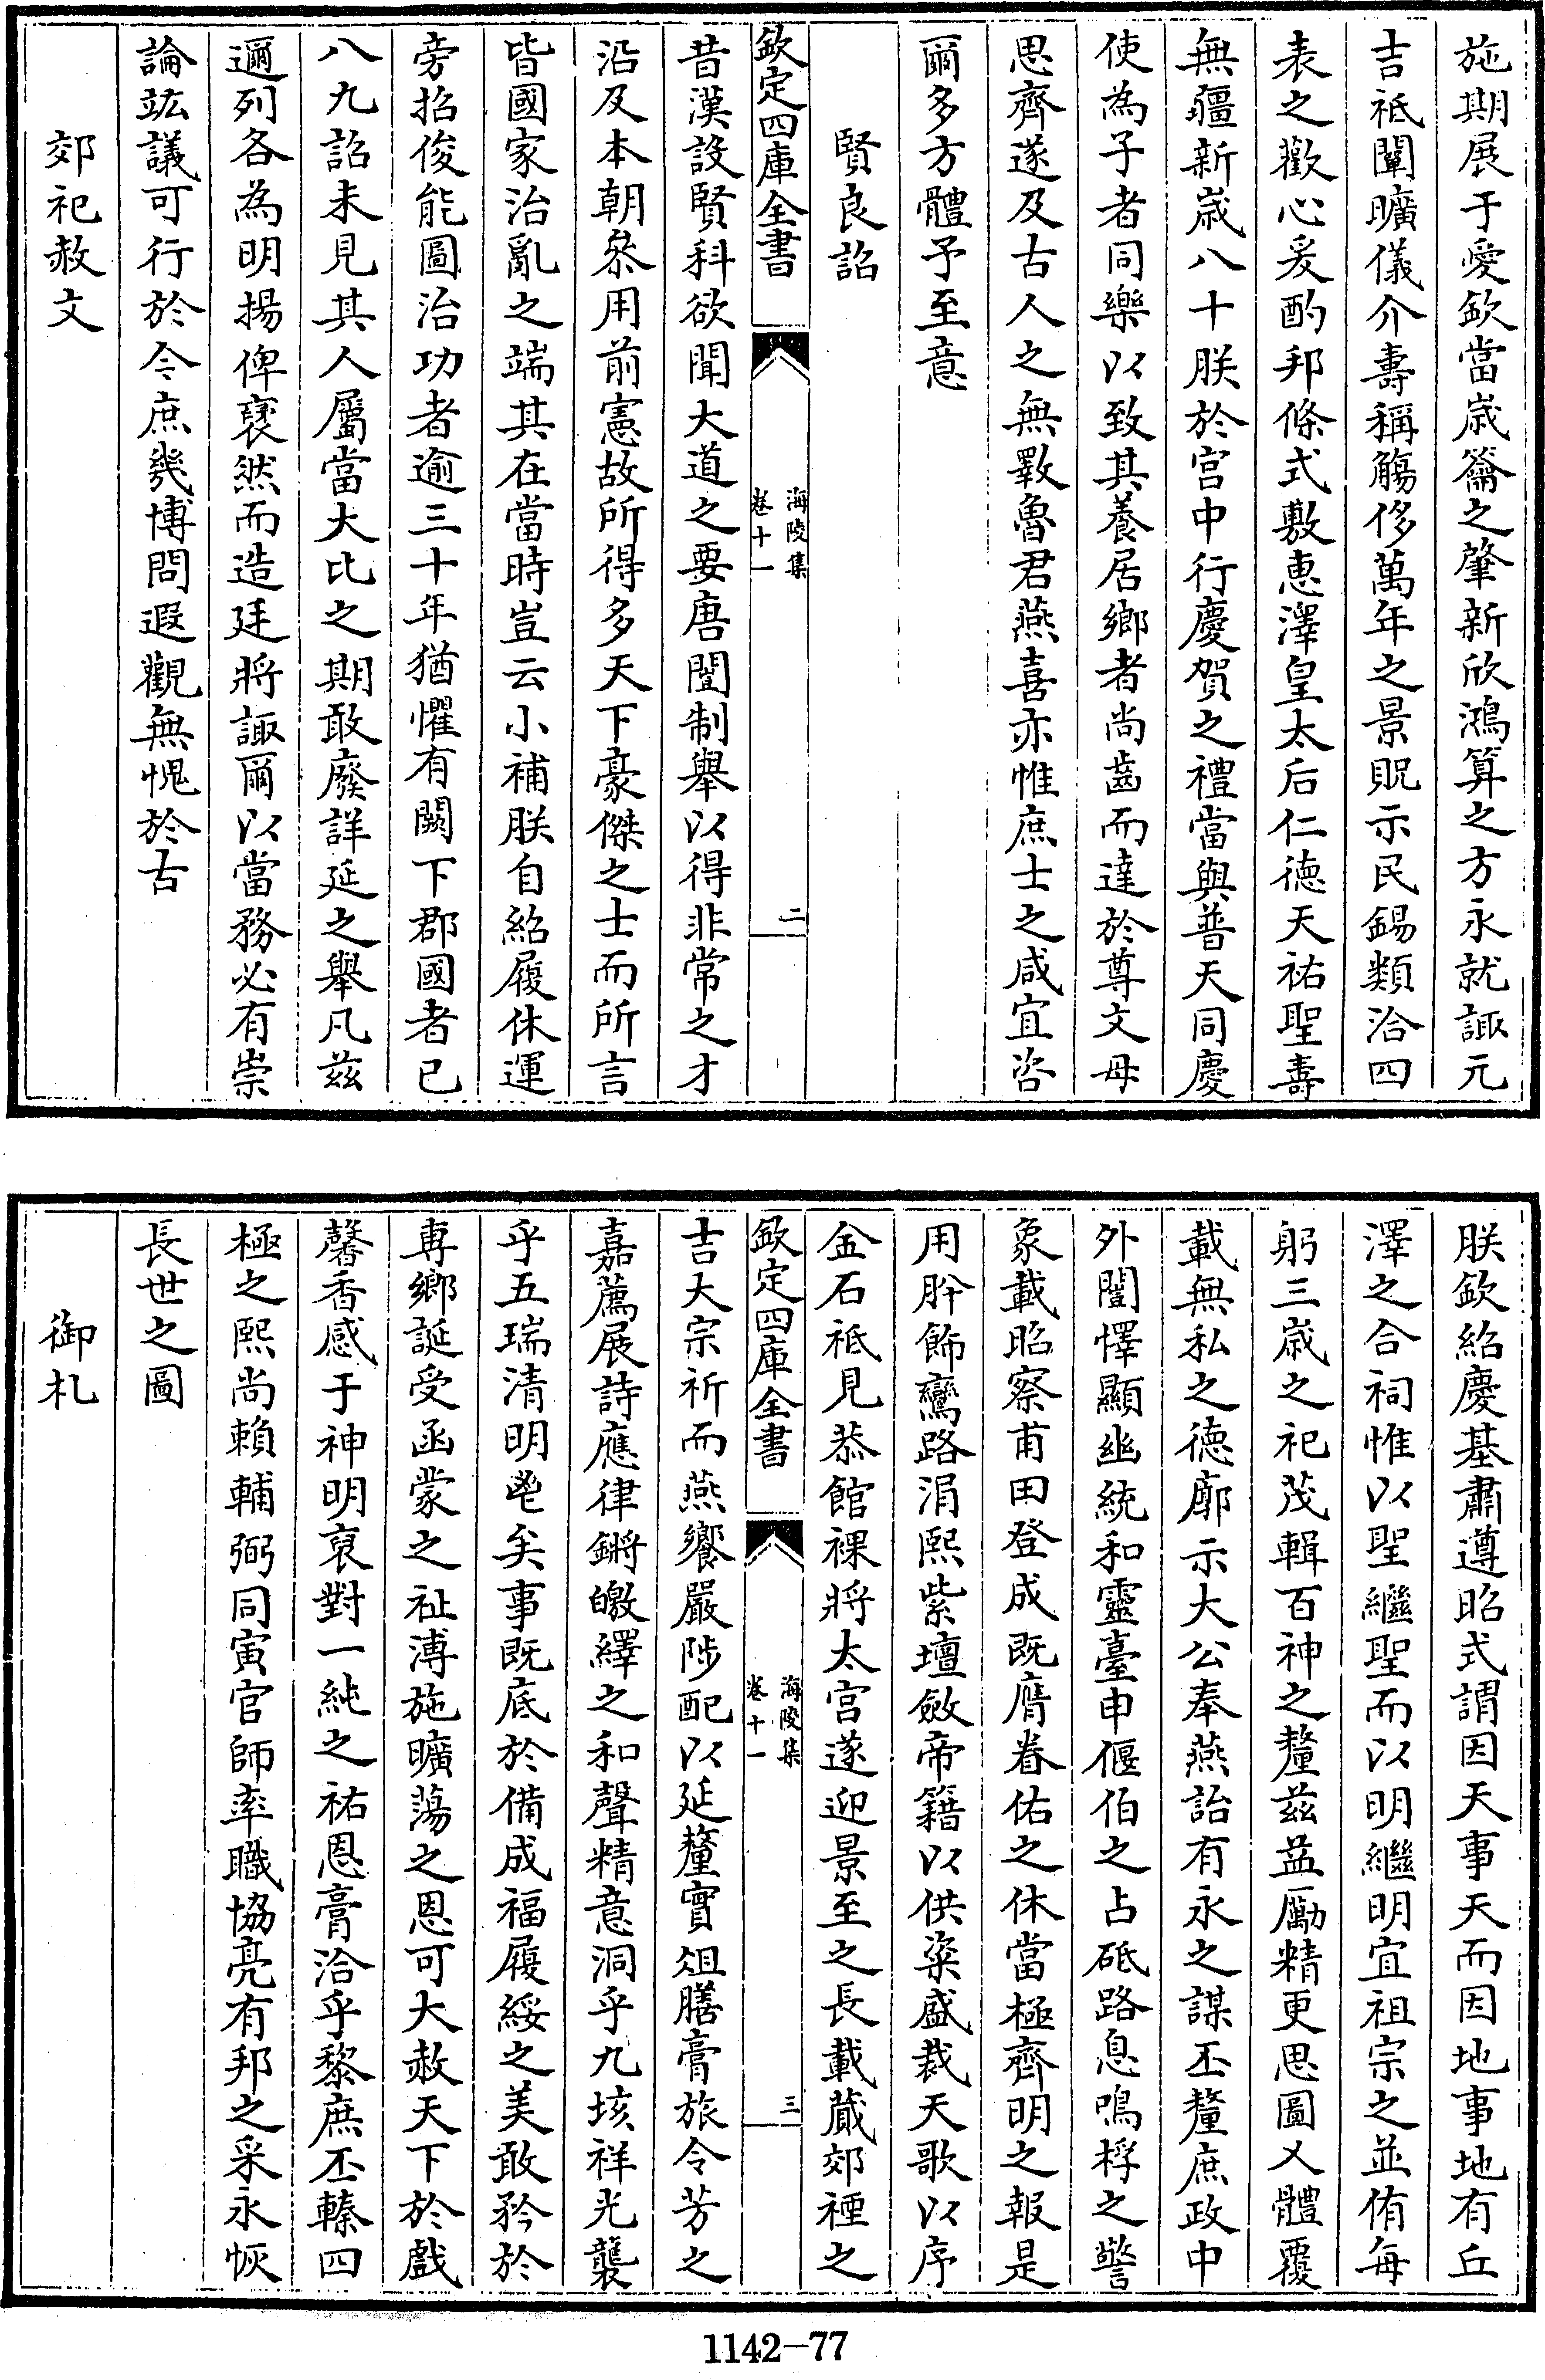 施期展于愛欽當嵗籥之肇新欣鴻算之方永就諏元
吉祇闡曠儀介壽稱觴侈萬年之景貺示民錫類洽四
表之歡心爰酌邦條式敷恵澤皇太后仁德天祐聖壽
無疆新嵗八十朕於宫中行慶賀之禮當與普天同慶
使為子者同樂以致其養居鄉者尚齒而達於尊文母
思齊遂及古人之無斁魯君燕喜亦惟庶士之咸宜咨
爾多方體予至意
賢良詔
欽定四庫全書
海陵集
卷十一
二
昔漢設賢科欲聞大道之要唐闓制舉以得非常之才
沿及本朝叅用前憲故所得多天下豪傑之士而所言
皆國家治亂之端其在當時豈云小補朕自紹履休運
旁招俊能圖治功者逾三十年猶懼有闕下郡國者已
八九詔未見其人屬當大比之期敢廢詳延之舉凡兹
邇列各為明揚俾褎然而造廷將諏爾以當務必有崇
論竑議可行於今庶幾博問遐觀無愧於古
郊祀赦文
朕欽紹慶基肅遵昭式謂因天事天而因地事地有丘
澤之合祠惟以聖繼聖而以明繼明宜祖宗之並侑每
躬三嵗之祀茂輯百神之釐兹益勵精更思圖乂體覆
載無私之德廓示大公奉燕詒有永之謀丕釐庶政中
外闓懌顯幽統和靈臺申偃伯之占砥路息鳴桴之警
象載昭察甫田登成既膺眷佑之休當極齊明之報是
用肸飾鸞路涓熙紫壇斂帝籍以供粢盛裁天歌以序
金石祇見恭館祼將太宫遂迎景至之長載蕆郊禋之
欽定四庫全書
海陵集
卷十一
三
吉大宗祈而燕饗嚴陟配以延釐實俎膳膏旅令芳之
嘉薦展詩應律鏘皦繹之和聲精意洞乎九垓祥光襲
乎五瑞清明鬯矣事既底於備成福履綏之美敢矜於
専鄉誕受函蒙之祉溥施曠蕩之恩可大赦天下於戲
馨香感于神明裒對一純之祐恩膏洽乎黎庶丕臻四
極之熙尚賴輔弼同寅官師率職協亮有邦之采永恢
長世之圖
御札
1142-77